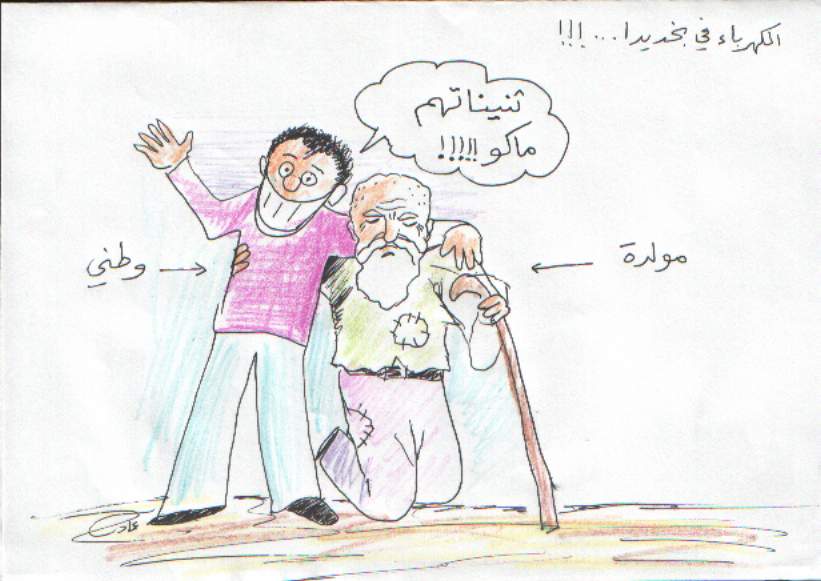 الكهرباء في بخديدا...!!!
ثنيناتهم
ماكو !!!!!
وطني
مولدة